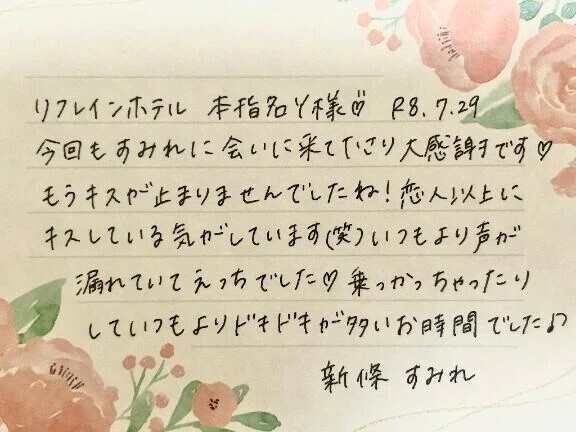 リフレインホテル 本指名Y様♡ R8.7.29
今回もすみれに会いに来て下さり大感謝です♡
もうキスが止まりませんでしたね!恋人以上に
キスしている気がしています(笑)いつもより声が
漏れていてえっちでした♡乗っかっちゃったり
していつもよりドキドキが多いお時間でした♪
新條 すみれ